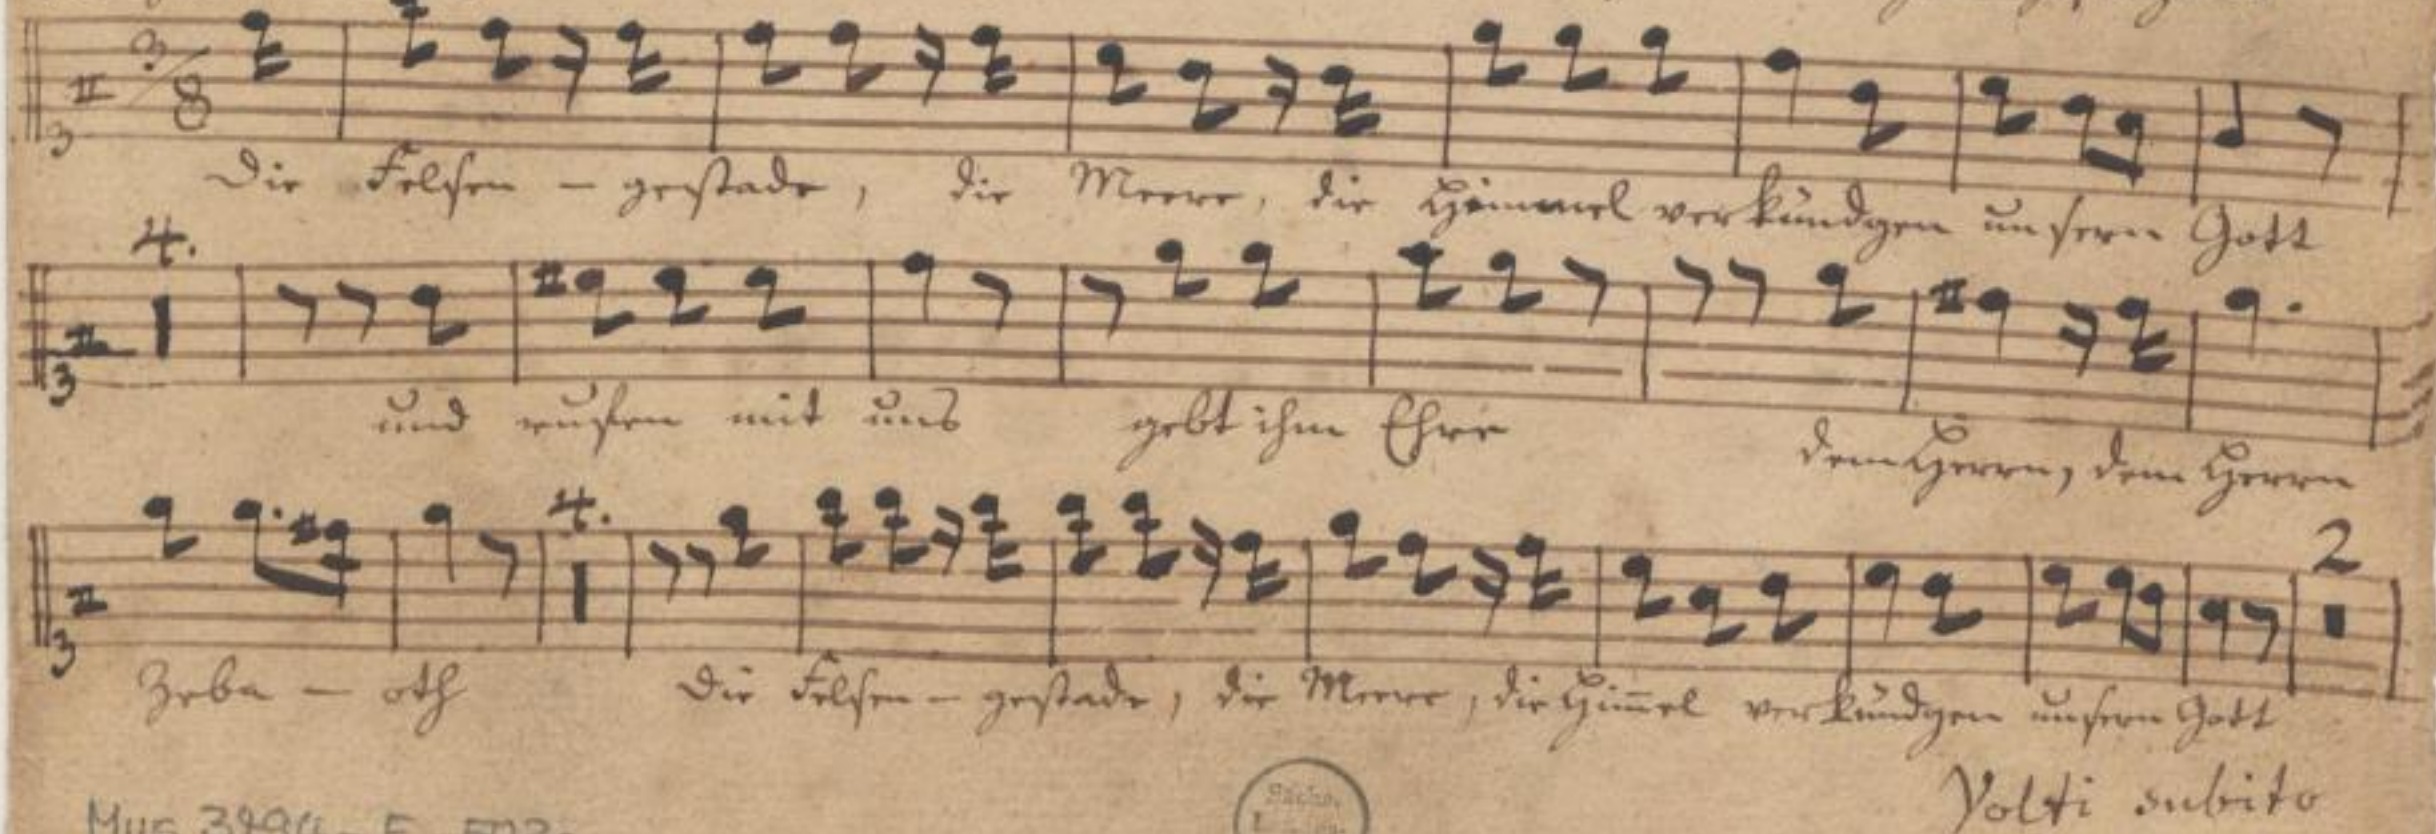 3/8
Die Felsen - gestade, die Meere, die Himmel verkündgen unsern Gott
4.
und rufen mit uns gebt ihm Ehre dem Herrn, dem Herrn
4. 2
Zeba - oth Die Felsen - gestade, die Meere, die Him̄el verkündgen unsern Gott
Volti subito
Mus